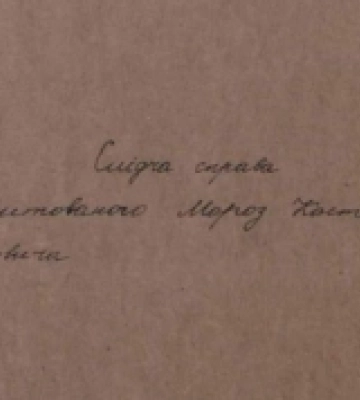 Слідча справа
итованого Мороз Кост
овича